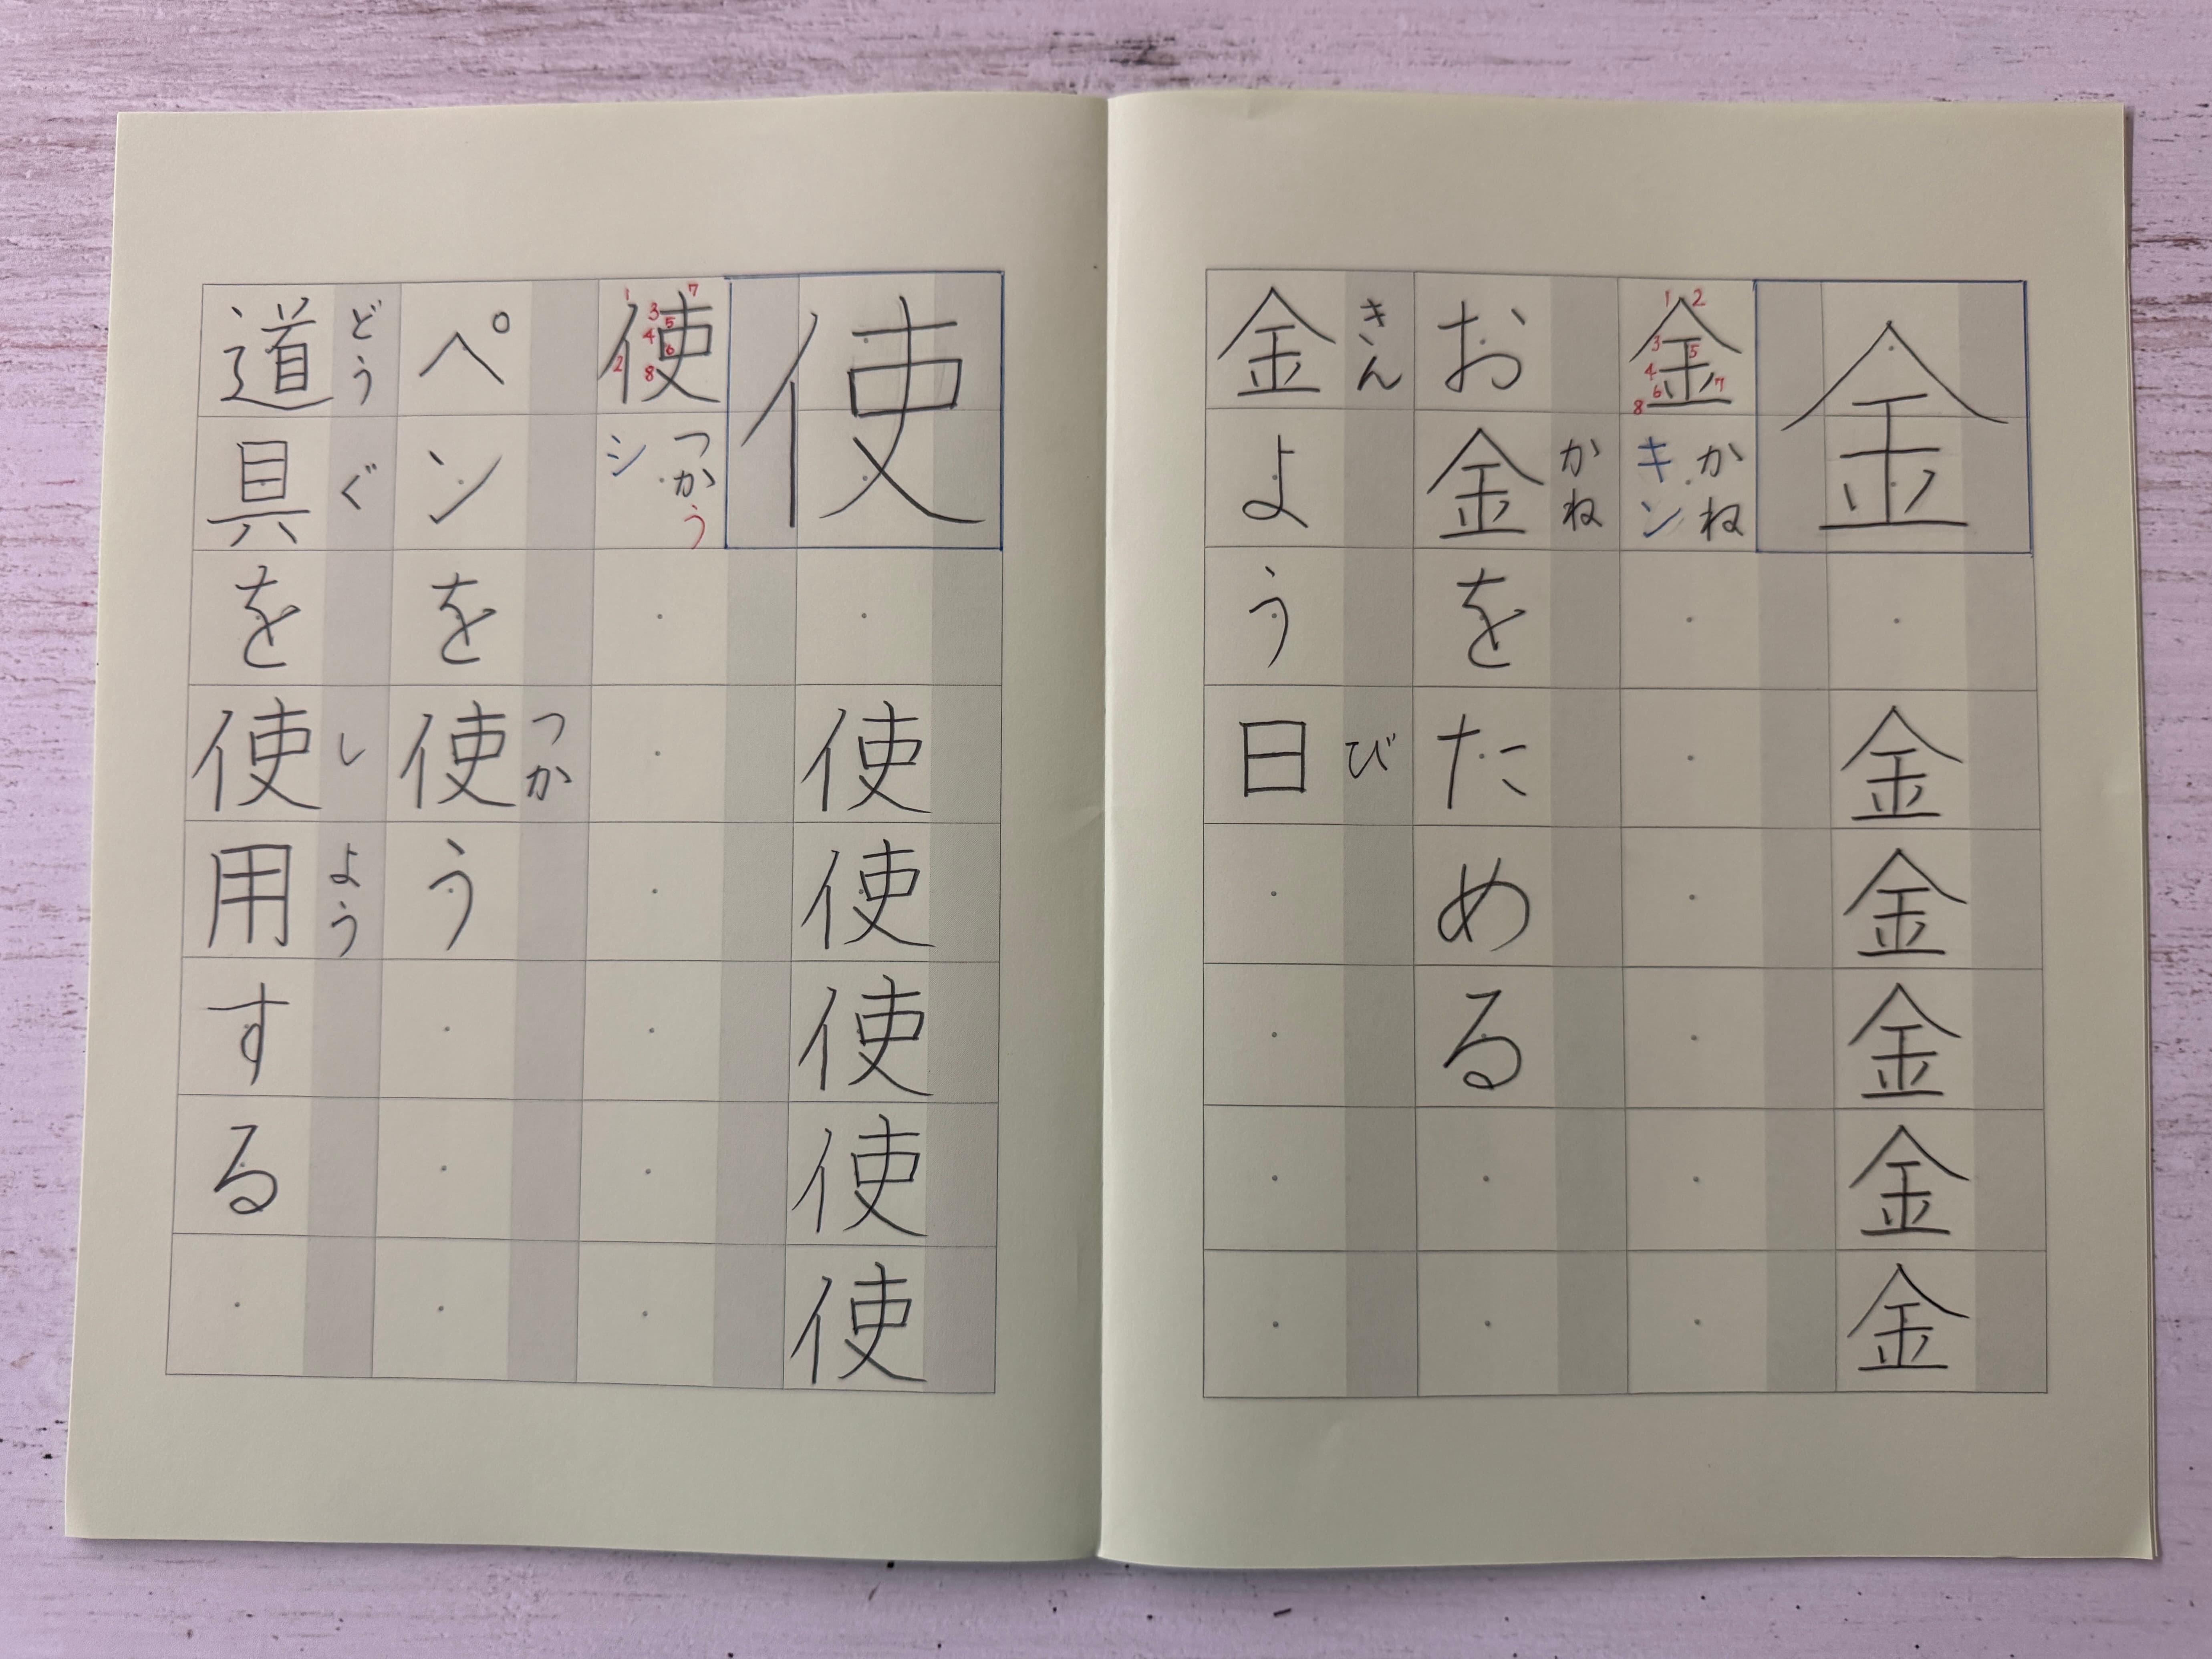 金
金
金
金
金
金
金
1 2 3 4 5 6 7 8
かね
キン
お金をためる
かね
金よう日
きん び
使
使
使
使
使
使
使
1 2 3 4 5 6 7 8
つかう
シ
ペンを使う
つか
道具を使用する
どう ぐ し よう